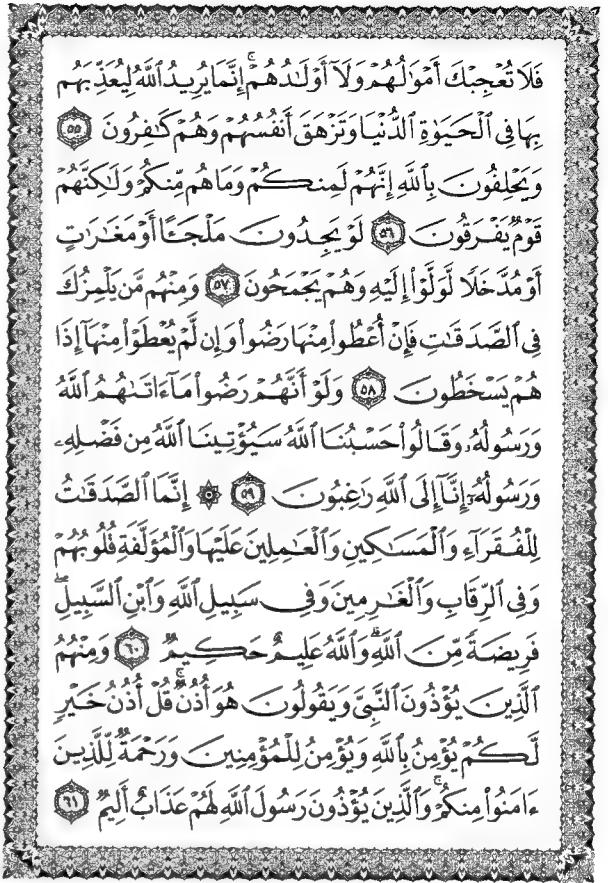 فَلَا تُعْجِبْكَ أَمْوَٰلُهُمْ وَلَآ أَوْلَـٰدُهُمْ ۚ إِنَّمَا يُرِيدُ ٱللَّهُ لِيُعَذِّبَهُم
بِهَا فِى ٱلْحَيَوٰةِ ٱلدُّنْيَا وَتَزْهَقَ أَنفُسُهُمْ وَهُمْ كَـٰفِرُونَ ٥٥
وَيَحْلِفُونَ بِٱللَّهِ إِنَّهُمْ لَمِنكُمْ وَمَا هُم مِّنكُمْ وَلَـٰكِنَّهُمْ
قَوْمٌ يَفْرَقُونَ ٥٦ لَوْ يَجِدُونَ مَلْجَـًٔا أَوْ مَغَـٰرَٰتٍ
أَوْ مُدَّخَلًا لَّوَلَّوْا۟ إِلَيْهِ وَهُمْ يَجْمَحُونَ ٥٧ وَمِنْهُم مَّن يَلْمِزُكَ
فِى ٱلصَّدَقَـٰتِ فَإِنْ أُعْطُوا۟ مِنْهَا رَضُوا۟ وَإِن لَّمْ يُعْطَوْا۟ مِنْهَآ إِذَا
هُمْ يَسْخَطُونَ ٥٨ وَلَوْ أَنَّهُمْ رَضُوا۟ مَآ ءَاتَىٰهُمُ ٱللَّهُ
وَرَسُولُهُۥ وَقَالُوا۟ حَسْبُنَا ٱللَّهُ سَيُؤْتِينَا ٱللَّهُ مِن فَضْلِهِۦ
وَرَسُولُهُۥٓ إِنَّآ إِلَى ٱللَّهِ رَٰغِبُونَ ٥٩ ۞ إِنَّمَا ٱلصَّدَقَـٰتُ
لِلْفُقَرَآءِ وَٱلْمَسَـٰكِينِ وَٱلْعَـٰمِلِينَ عَلَيْهَا وَٱلْمُؤَلَّفَةِ قُلُوبُهُمْ
وَفِى ٱلرِّقَابِ وَٱلْغَـٰرِمِينَ وَفِى سَبِيلِ ٱللَّهِ وَٱبْنِ ٱلسَّبِيلِ ۖ
فَرِيضَةً مِّنَ ٱللَّهِ ۗ وَٱللَّهُ عَلِيمٌ حَكِيمٌ ٦٠ وَمِنْهُمُ
ٱلَّذِينَ يُؤْذُونَ ٱلنَّبِىَّ وَيَقُولُونَ هُوَ أُذُنٌ ۚ قُلْ أُذُنُ خَيْرٍ
لَّكُمْ يُؤْمِنُ بِٱللَّهِ وَيُؤْمِنُ لِلْمُؤْمِنِينَ وَرَحْمَةٌ لِّلَّذِينَ
ءَامَنُوا۟ مِنكُمْ ۚ وَٱلَّذِينَ يُؤْذُونَ رَسُولَ ٱللَّهِ لَهُمْ عَذَابٌ أَلِيمٌ ٦١